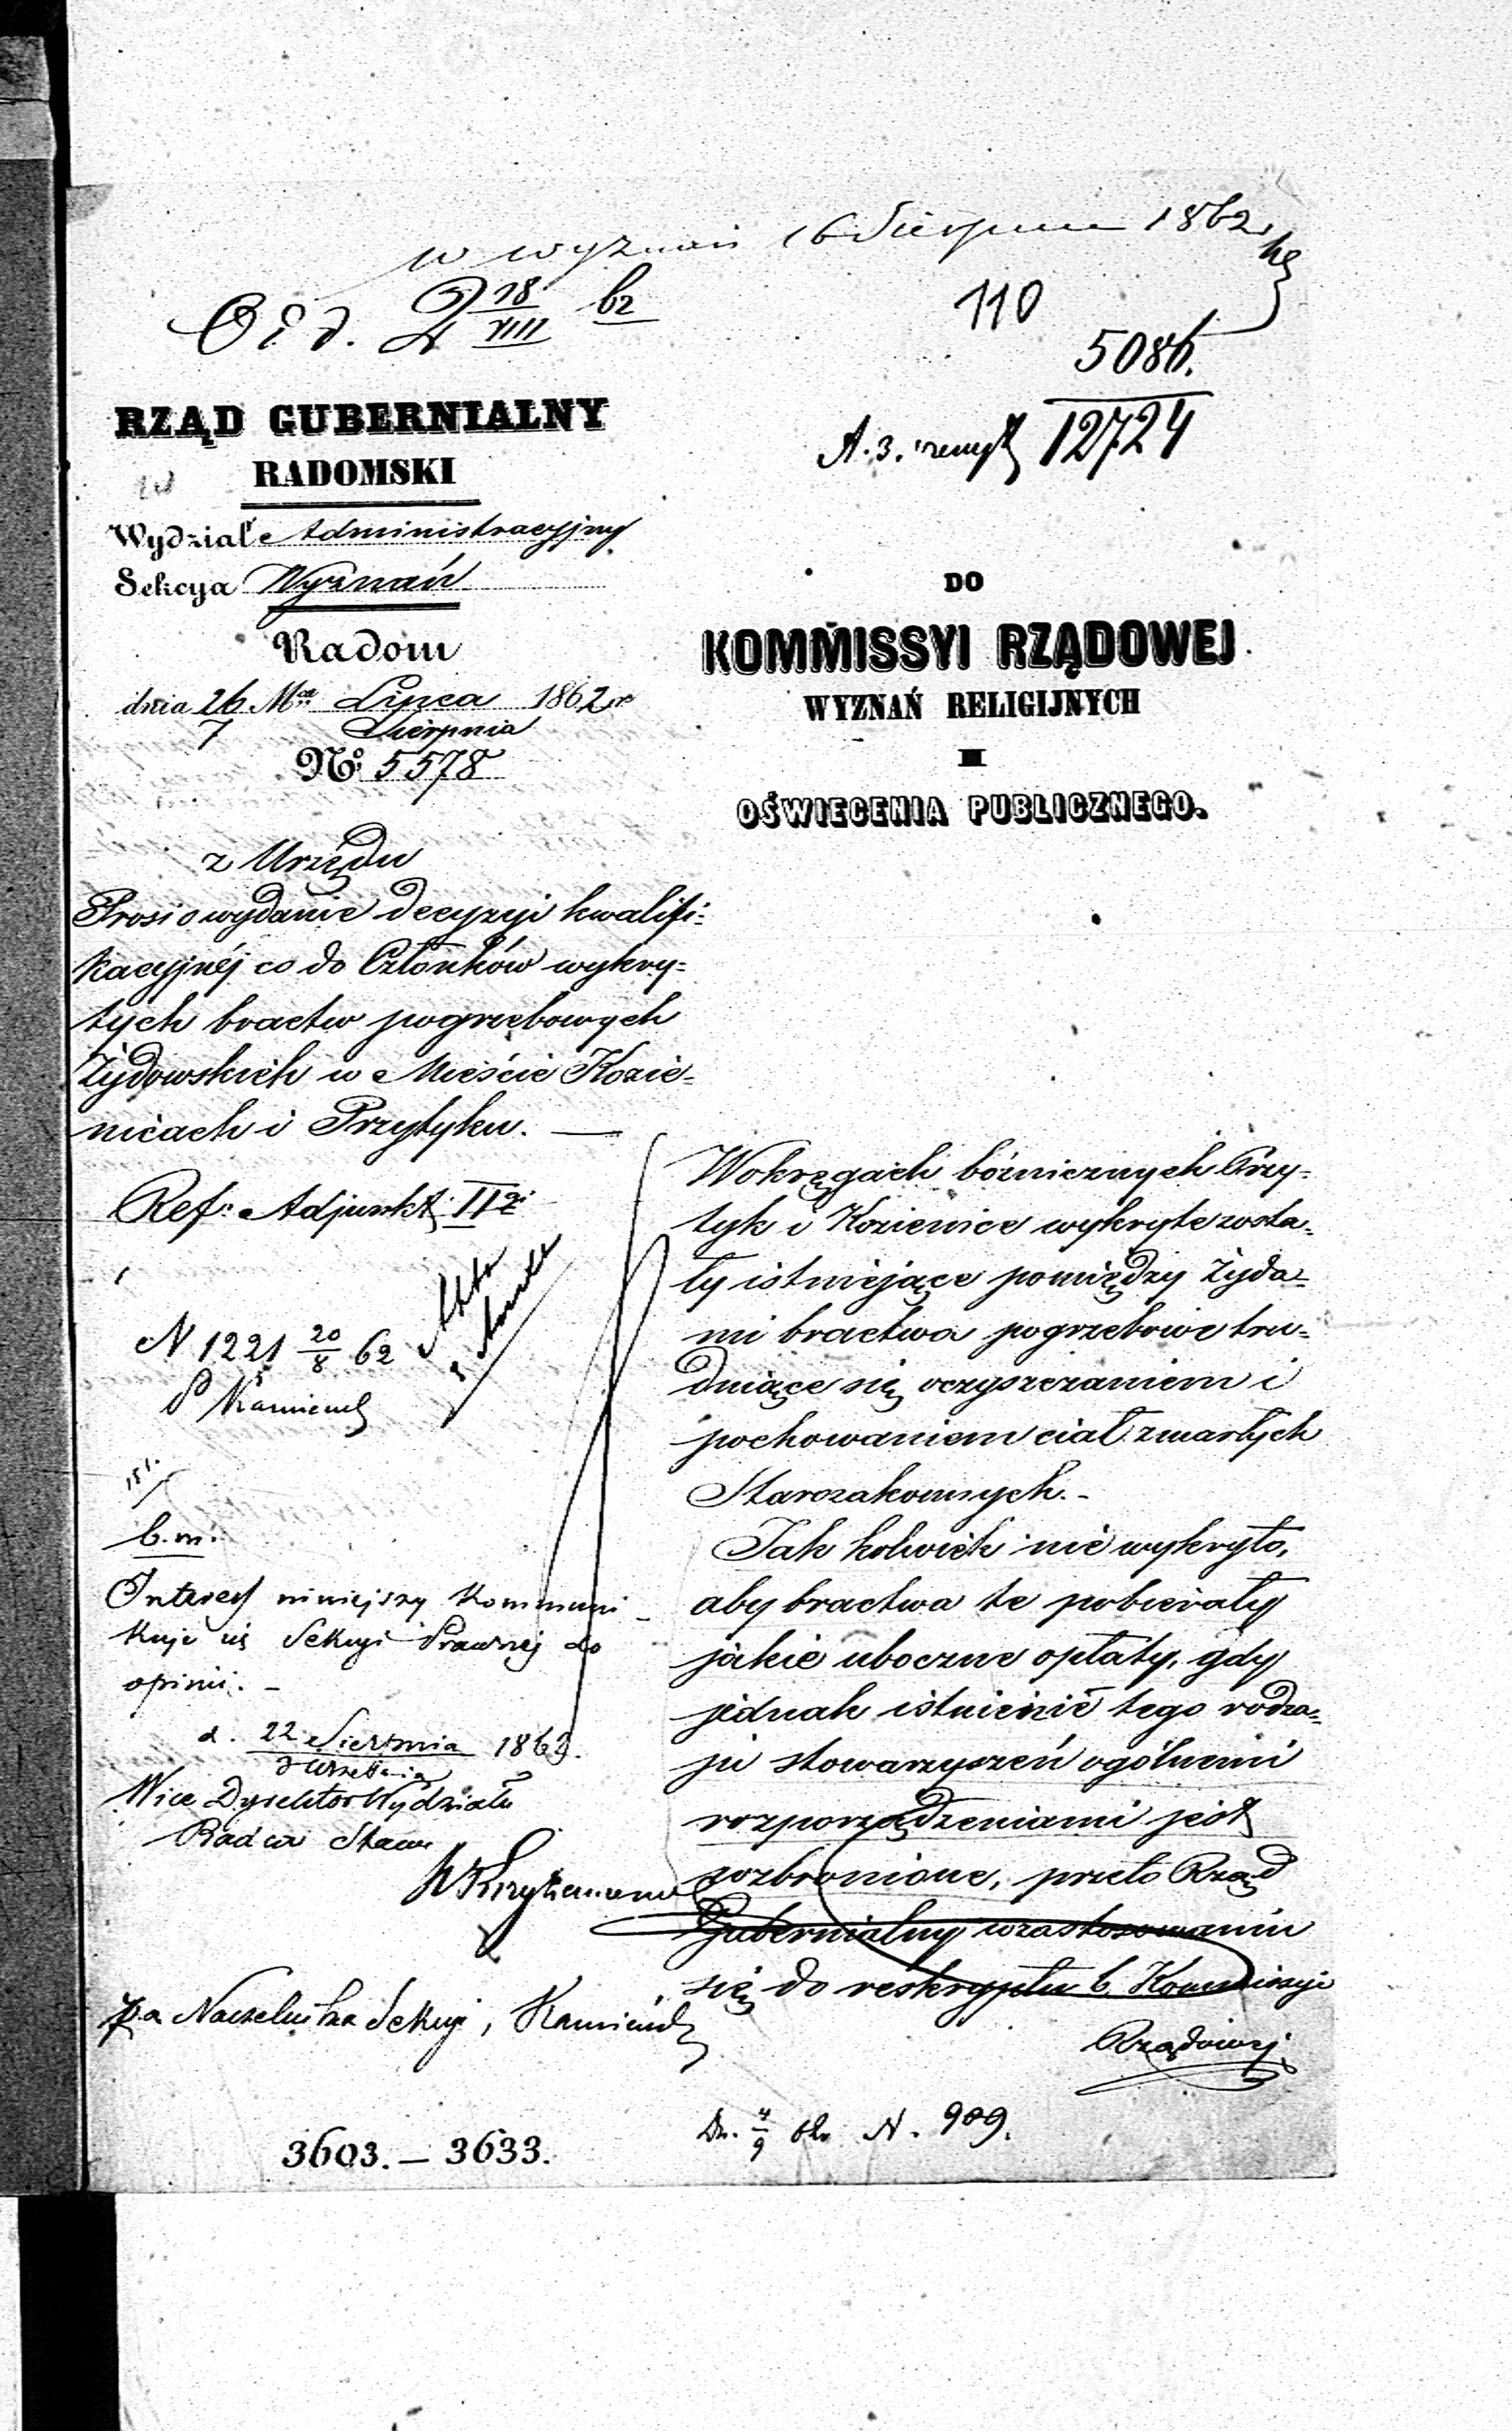 w wyznań 16 Sierpnia 1862
Odd. 2 18/VIII 62
110
5086.
12724
RZĄD GUBERNIALNY
RADOMSKI
Wydział Administracyjny
Sekcya Wyznań
Radom
dnia 26 Mca Lipca 1862 r
7 Sierpnia
No. 5578
DO
KOMMISSYI RZĄDOWEJ
WYZNAŃ RELIGIJNYCH
I
OŚWIECENIA PUBLICZNEGO.
z Urzędu
Prosi o wydanie decyzyi kwalifi=
kacyjnéj co do Członków wykry=
tych bractw pogrzebowych
Żydowskich w Mieście Kozie=
nicach i Przytyku. —
Ref: Adjunkt IIgi
N 1221 20/8 62
b.m.
Interes niniejszy kommuni
kuje się Sekcyi Prawnej do
opinii. –
d. 22 Sierpnia 1862.
3 Września
Wice Dyrektor Wydziału
Radca Stanu
za Naczelnika Sekcyi,
3603. — 3633.
W okręgach bóżnicznych Przy=
tyk i Kozienice wykryte zosta=
ły istniejące pomiędzy Żyda=
mi bractwa pogrzebowe tru=
dniące się oczyszczaniem i
pochowaniem ciał zmarłych
Starozakonnych. –
Jak kolwiek nie wykryto,
aby bractwa te pobierały
jakie uboczne opłaty, gdy
jednak istnienie tego rodza=
ju stowarzyszeń ogólnemi
rozporządzeniami jest
wzbronione, przeto Rząd
Gubernialny w zastosowaniu
się do reskryptu b. Kommissyi
Rządowej
4/9 62 N. 909.